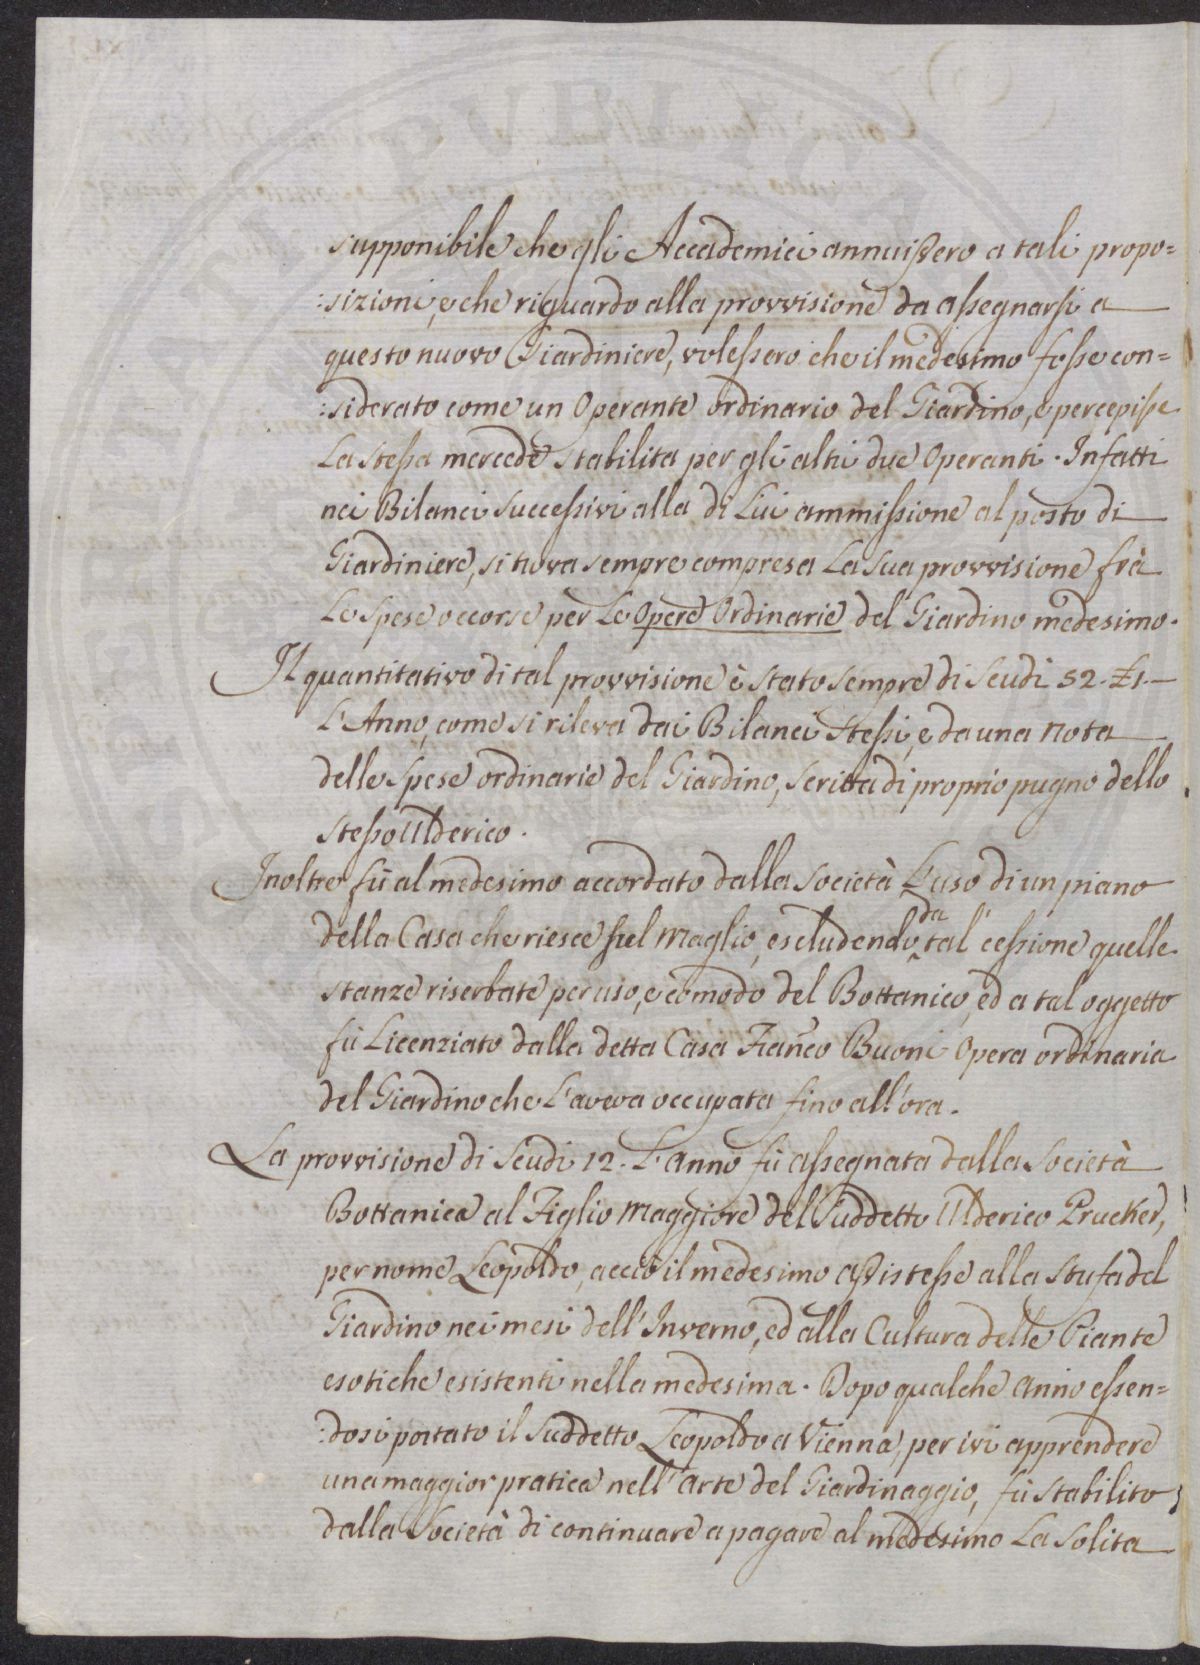 supponibile che gli Accademici annuissero a tali propo=
:sizioni, e che riguardo alla provvisione da assegnarsi a
questo nuovo Giardiniere, volessero che il medesimo fosse con=
:siderato come un Operante ordinario del Giardino, e percepisse
La stessa mercede stabilita per gli altri due Operanti. Infatti
nei Bilanci successivi alla di Lui ammissione al posto di
Giardiniere, si trova sempre compresa La sua provvisione frà
Le spese occorse per Le Opere Ordinarie del Giardino medesimo.
Il quantitativo di tal provvisione è stato sempre di Scudi 52. £1.—
L'Anno, come si rileva dai Bilanci stessi, e da una nota
delle spese ordinarie del Giardino, scritta di proprio pugno dello
stesso Ulderico.
Inoltre fù al medesimo accordato dalla Società L'uso di un piano
della Casa che riesce sul Maglio, escludendo da tal' cessione quelle
stanze riserbate per uso, e comodo del Bottanico, ed a tal oggetto
fù Licenziato dalla detta Casa Franco Buoni Opera ordinaria
del Giardino che L'aveva occupata fino all'ora.
La provvisione di Scudi 12. L'anno fù assegnata dalla Società
Bottanica al Figlio Maggiore del Suddetto Ulderico Prucker,
per nome Leopoldo, acciò il medesimo assistesse alla Stufa del
Giardino nei mesi dell'Inverno, ed alla Cultura delle Piante
esotiche esistenti nella medesima. Dopo qualche anno essen=
:dosi portato il Suddetto Leopoldo a Vienna, per ivi apprendere
una maggior pratica nell'arte del Giardinaggio, fù stabilito
dalla Società di continuare a pagare al medesimo La Solita